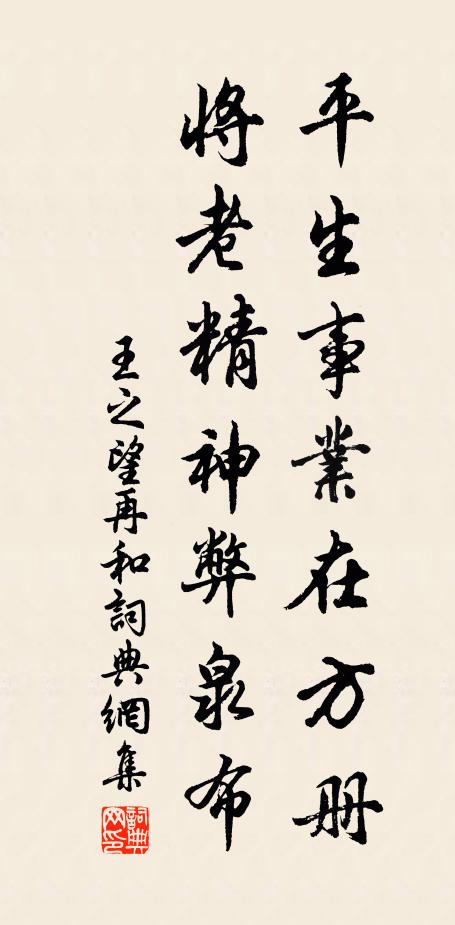 平生事業在方册
將老精神弊泉布
王之望再和詞典網集
詞典網印